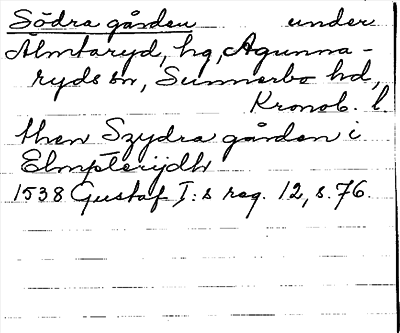 Södra gården under
Älmtaryd, hg, Agunna-
ryds sn, Sunnerbo hd,
Kronob. l.
then Szydra gården i
Elmpterijdh
1538 Gustaf I:s reg. 12, s. 76.